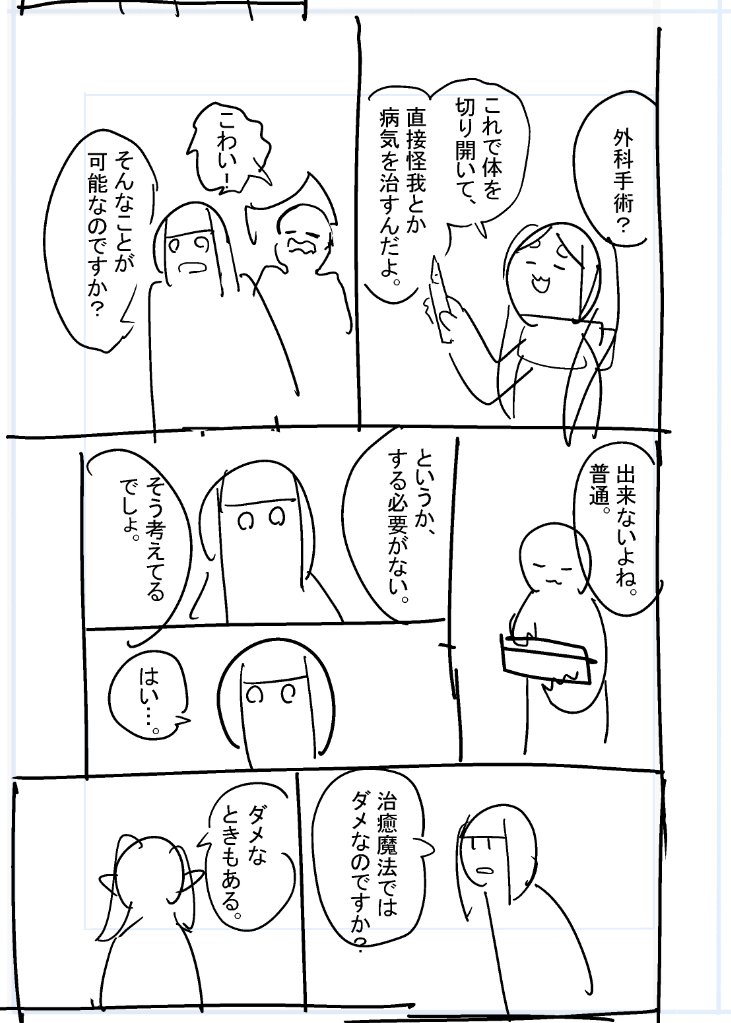 外科手術?
これで体を
切り開いて、
直接怪我とか
病気を治すんだよ。
こわい!
そんなことが
可能なのですか?
出来ないよね。
普通。
というか、
する必要がない。
そう考えてる
でしょ。
はい…。
治癒魔法では
ダメなのですか?
ダメな
ときもある。